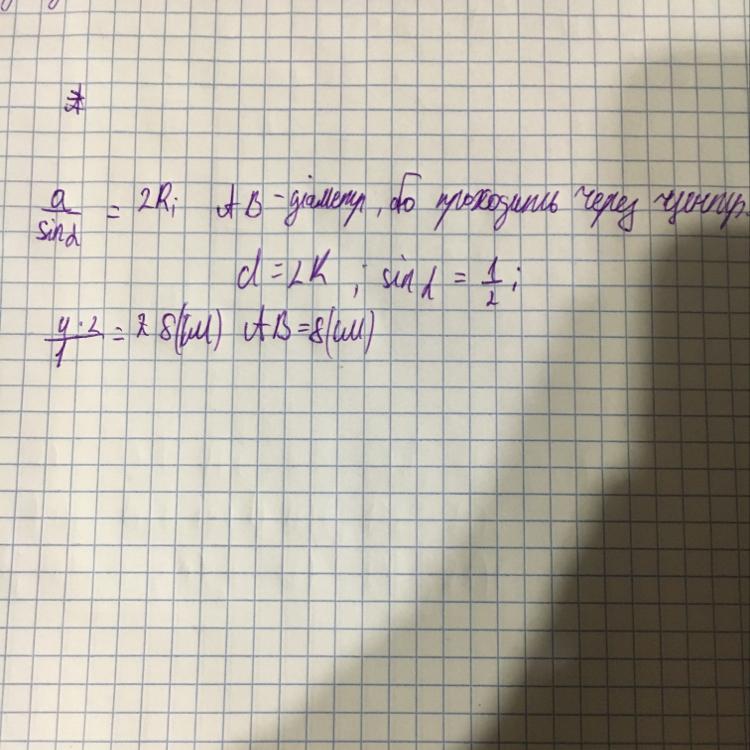 a/sinα = 2R; AB - діаметр, бо проходить через центр.
d = 2R ; sinα = 1/2;
4·2/1 = 8(см) AB = 8(см)